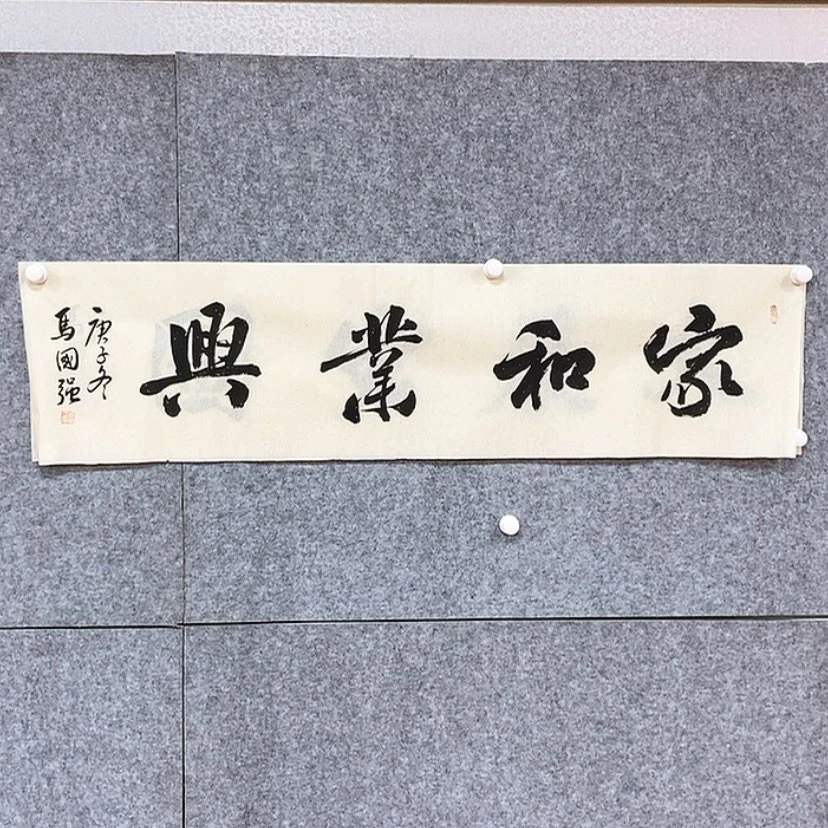 家和業興
庚子冬
馬國强